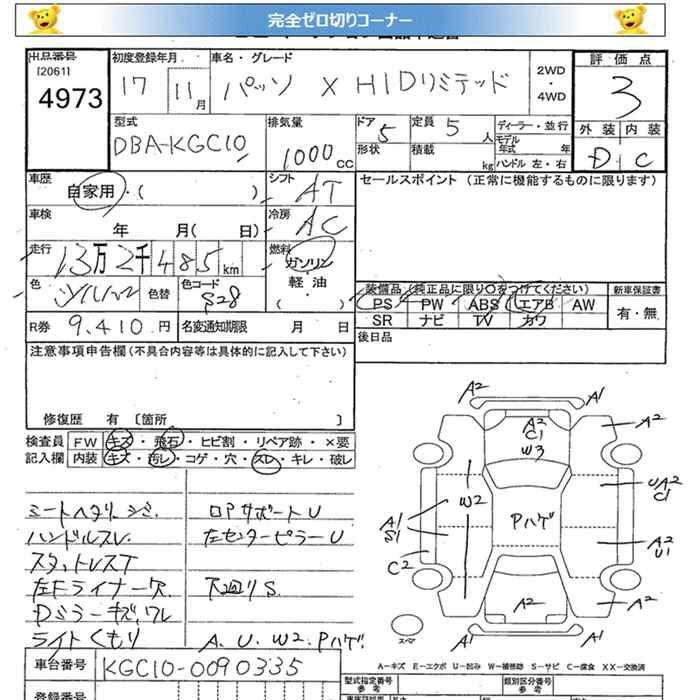 完全ゼロ切りコーナー
出品番号
[2061]
4973
初度登録年月
17 11月
車名・グレード
パッソ X HIDリミテッド
2WD
・
4WD
評価点
3
外装 内装
D C
型式
DBA-KGC10
排気量
1000cc
ドア
5
定員
5人
形状
積載
kg
ディーラー・並行
モデル年式 年
ハンドル 左・右
車歴
自家用・( )
シフト
AT
セールスポイント (正常に機能するものに限ります)
車検
年 月( 日)
冷房
AC
走行
13万2千485km
燃料
ガソリン
軽・油
色
シルバー
色替
色コード
S28
装備品 (純正品に限り○をつけてください)
新車保証書
PS PW ABS エアB AW
SR ナビ TV カワ
有・無
R券 9,410円
名変通知期限 月 日
後日品
注意事項申告欄(不具合内容等は具体的に記入して下さい)
修復歴 有 〔箇所 〕
検査員 FW キズ・飛石・ヒビ割・リペア跡・×要
記入欄 内装 キズ・汚レ・コゲ・穴・スレ・キレ・破レ
シートヘタリ、シミ
ハンドルスレ
スタットレスT
左Fライナー欠
Dミラーキズ、ワレ
ライトくもり
ロアサポートU
左センターピラーU
下廻りS
A、U、W2、Pハゲ
A2
A1
A2
A2
C1
W3
UA2
C1
W2
Pハゲ
A1
S1
C2
A2
U1
A2
A2
A1
A1
スペア
A-キズ E-エクボ U-凹み W-補修跡 S-サビ C-腐食 XX-交換済
車台番号 KGC10-0090335
型式指定番号
参考
類別区分番号
参考
登録番号